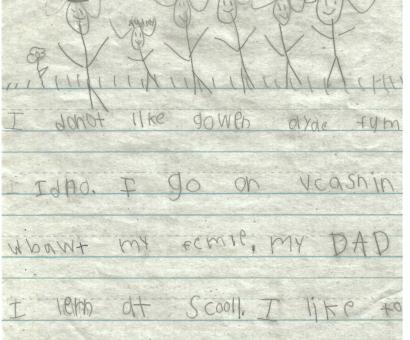 I donot like gowen ayae fym
Idho. I go on vcashin
wbawt my femle. my DAD
I lern at Scooll. I like to